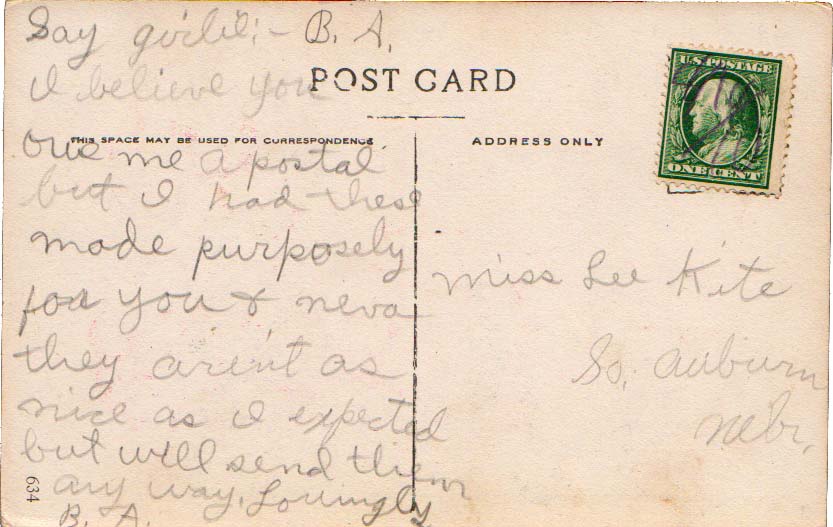 Say girlie:- B. A.
I believe you
POST CARD
THIS SPACE MAY BE USED FOR CORRESPONDENCE
owe me a postal
but I had these
made purposely
for you & neva
they aren't as
nice as I expected
but will send them
any way. Lovingly
B. A.
634
ADDRESS ONLY
U.S. POSTAGE
ONE CENT
Miss Lee Kite
So. Auburn
Nebr.